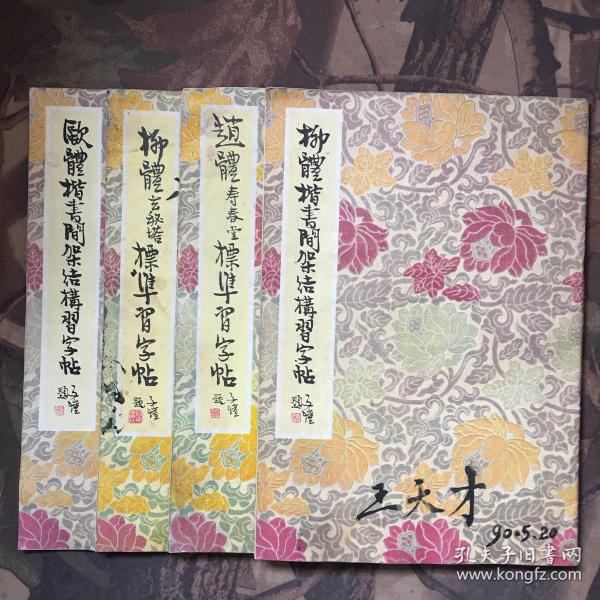 歐體楷書間架结構習字帖
子愷
題
柳體玄秘塔標準習字帖
子愷
題
趙體寿春堂標準習字帖
子愷
題
柳體楷書間架结構習字帖
子愷
題
王天才
90.5.20
孔夫子旧書网
www.kongfz.com